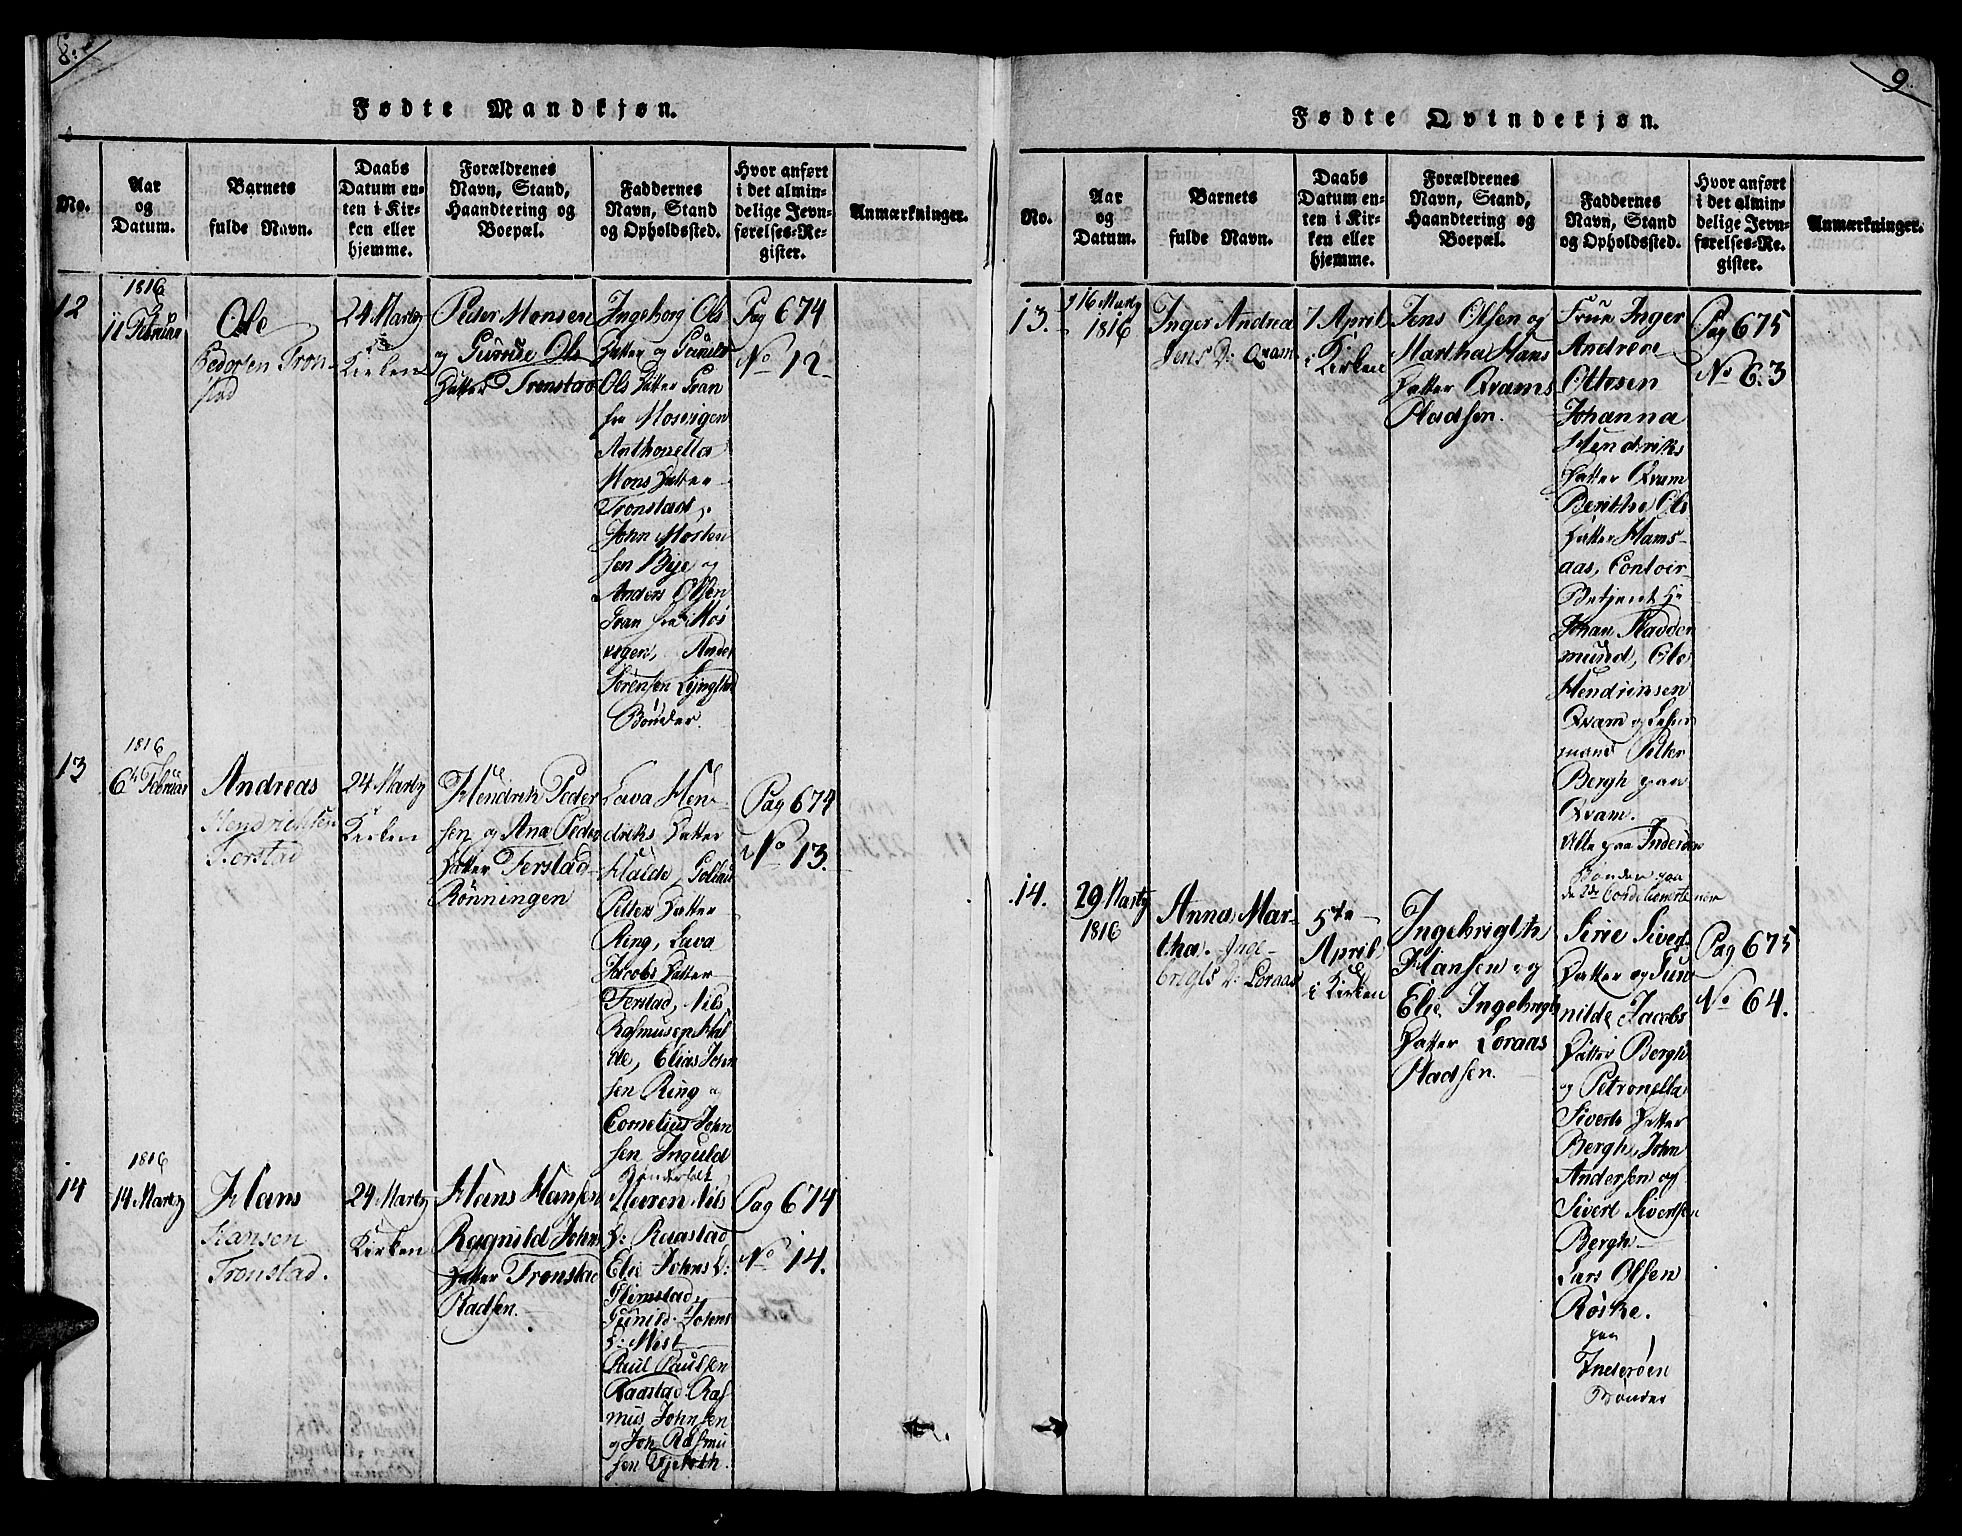 8.
Fødte Mandkjøn.
No.
Aar
og
Datum.
Barnets
fulde Navn.
Daabs
Datum en-
ten i Kir-
ken eller
hjemme.
Forældrenes
Navn, Stand,
Haandtering og
Boepæl.
Faddernes
Navn, Stand
og Opholdssted.
Hvor anført
i det almin-
delige Jevn-
førelses-Re-
gister.
Anmærkninger.
12
1816
11 Februar
Ole
Pedersen Tron-
stad
24 Marty
Kirken
Peder Monsen
og Gurrue Ols
Datter Tronstad
Ingeborg Ols
Datter og Gunild
Ols Datter Gran
fra Mosvigen
Anthonetta
Mons Datter
Tronstad,
John Morten
sen Bye og
Anders Olsen
Gran fra Mos
vigen, Ander
Sørensen Lyngstad
Bønder
Pag 674
No 12
13
1816
6te Februar
Andreas
Hendrichsen
Ferstad
24 Marty
Kirken
Hendrik Peder
sen og Ana Peder
Datter Ferstad
Rønningen
Lava Hen
driks Datter
Halde,
Petter Datter
Ring, Lava
Jacobs Datter
Ferstad, Nils
Rasmusen Hal
de, Elias John
sen Ring og
Cornelius John
sen Inguld
Bønderfolk
Pag 674
No 13.
14
1816
14 Marty
Hans
Hansen
Tronstad.
24 Marty
Kirken
Hans Hansen
Ragnild Johns
Datter Tronstad
Pladsen.
Maren Nils
D: Raastad
Elie Johns D:
Flimstad,
Gunild Johns
D: Mist
Paul Paulsen
Raastad. Ras
mus Johnsen
og Joh Rasmu
sen Vjetoth.
Pag 674
No 14.
9.
Fødte Qvindekjøn.
No.
Aar
og
Datum.
Barnets
fulde Navn.
Daabs
Datum en-
ten i Kir-
ken eller
hjemme.
Forældrenes
Navn, Stand,
Haandtering og
Boepæl.
Faddernes
Navn, Stand
og Opholdssted.
Hvor anført
i det almin-
delige Jevn-
førelses-Re-
gister.
Anmærkninger.
13.
16 Marty
1816
Inger Andrea
Jens D: Qvam
7 April
i Kirken
Jens Olsen og
Martha Hans
Datter Qvams
Pladsen.
Frue Inger
Andrea
Ottesen
Johanna
Hendriks
Datter Qvam
Berithe Ols
Datter Hams-
aas, Contoir-
Betjent Hr
Johan Radder
mund, Ole
Hendriksen
Qvam og Leher
mand Peter
Bergh paa
Qvam.
Alle paa Inderøen
Bønder paa
Pag 675
No 63
14.
29 Marty
1816
Anna Mar-
tha. Inge-
brigts D: Loraas
5te
April
i Kirken
Ingebrigth
Hansen og
Elie Ingebrigts
Datter Loraas
Pladsen.
Sirie Siverts
Datter og Gun
nilde Jacobs
Datter Bergh
og Petronella
Siverts Datter
Bergh, John
Andersen og
Sivert Sivertsen
Bergh
Lars Olsen
Røske.
paa
Inderøen
Bønder
Pag 675
No 64.